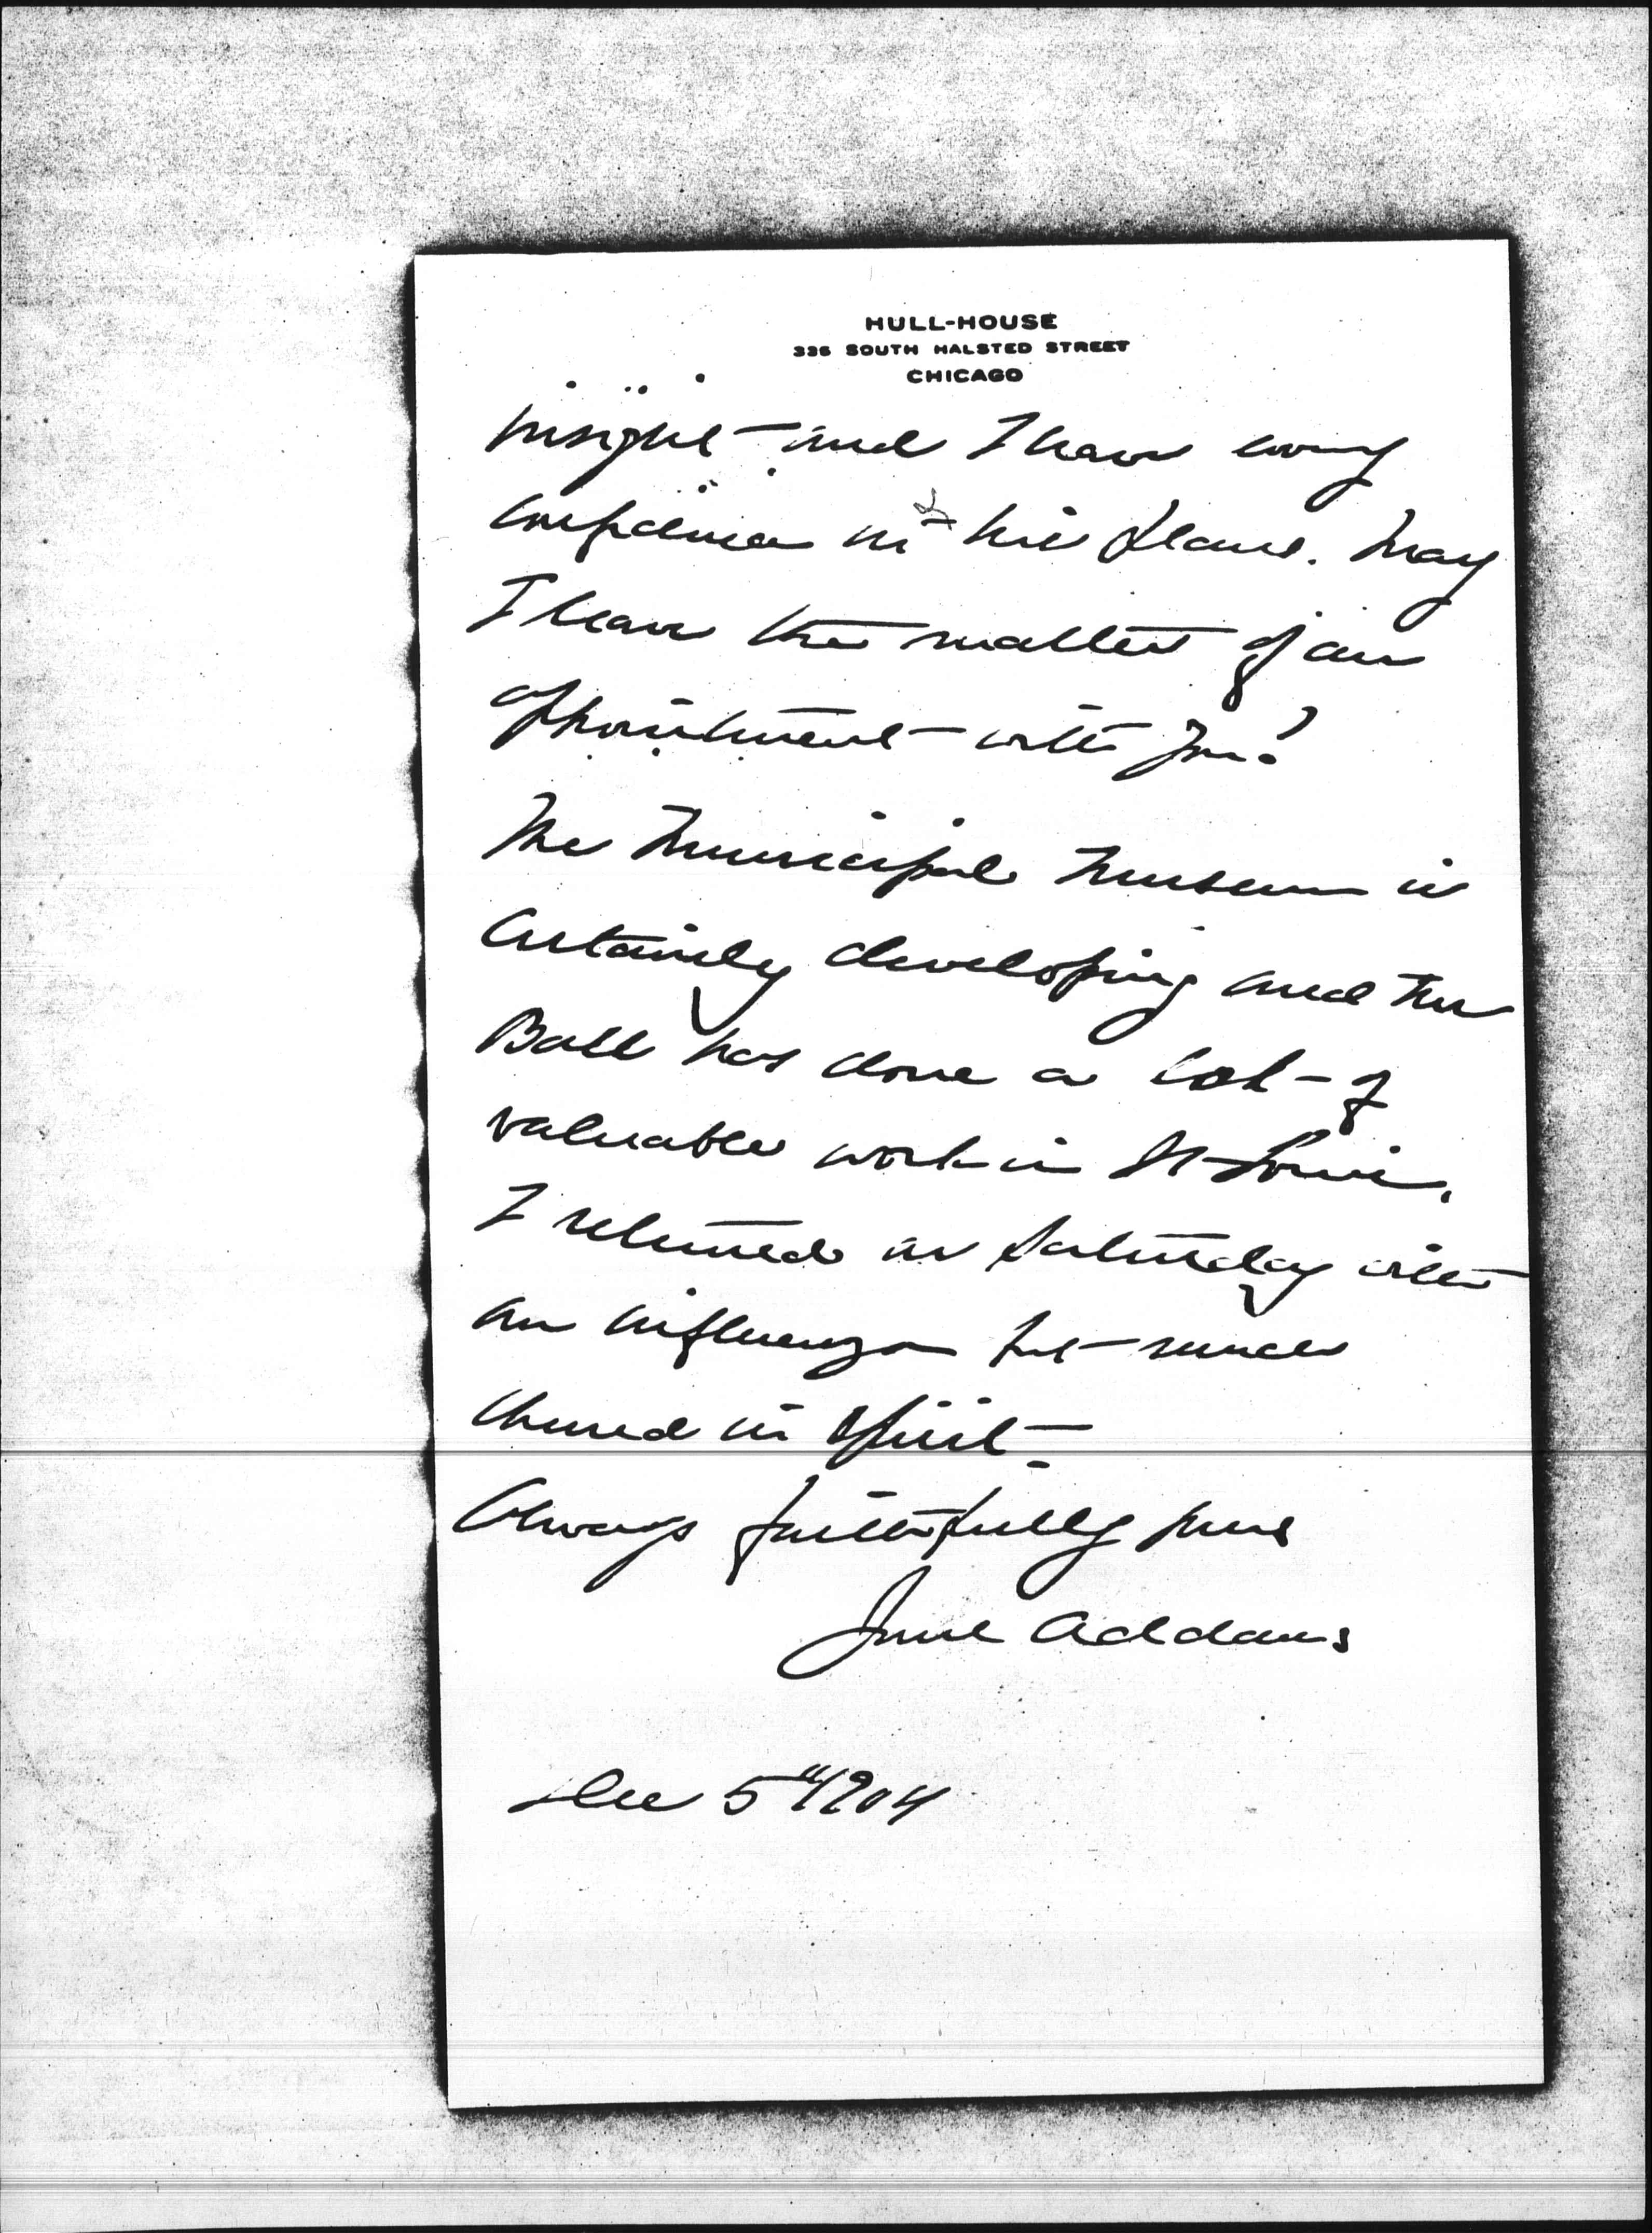 HULL-HOUSE
335 SOUTH HALSTED STREET
CHICAGO
insight and I have every
confidence in his plans. May
I leave the matter of an
appointment with you?
The Municipal Museum is
certainly developing and Mr
Ball has done a lot of
valuable work in St Louis.
I returned on Saturday with
an influenza but much
cheered in spirit
Always faithfully yours
Jane Addams
Dec 5" 1904